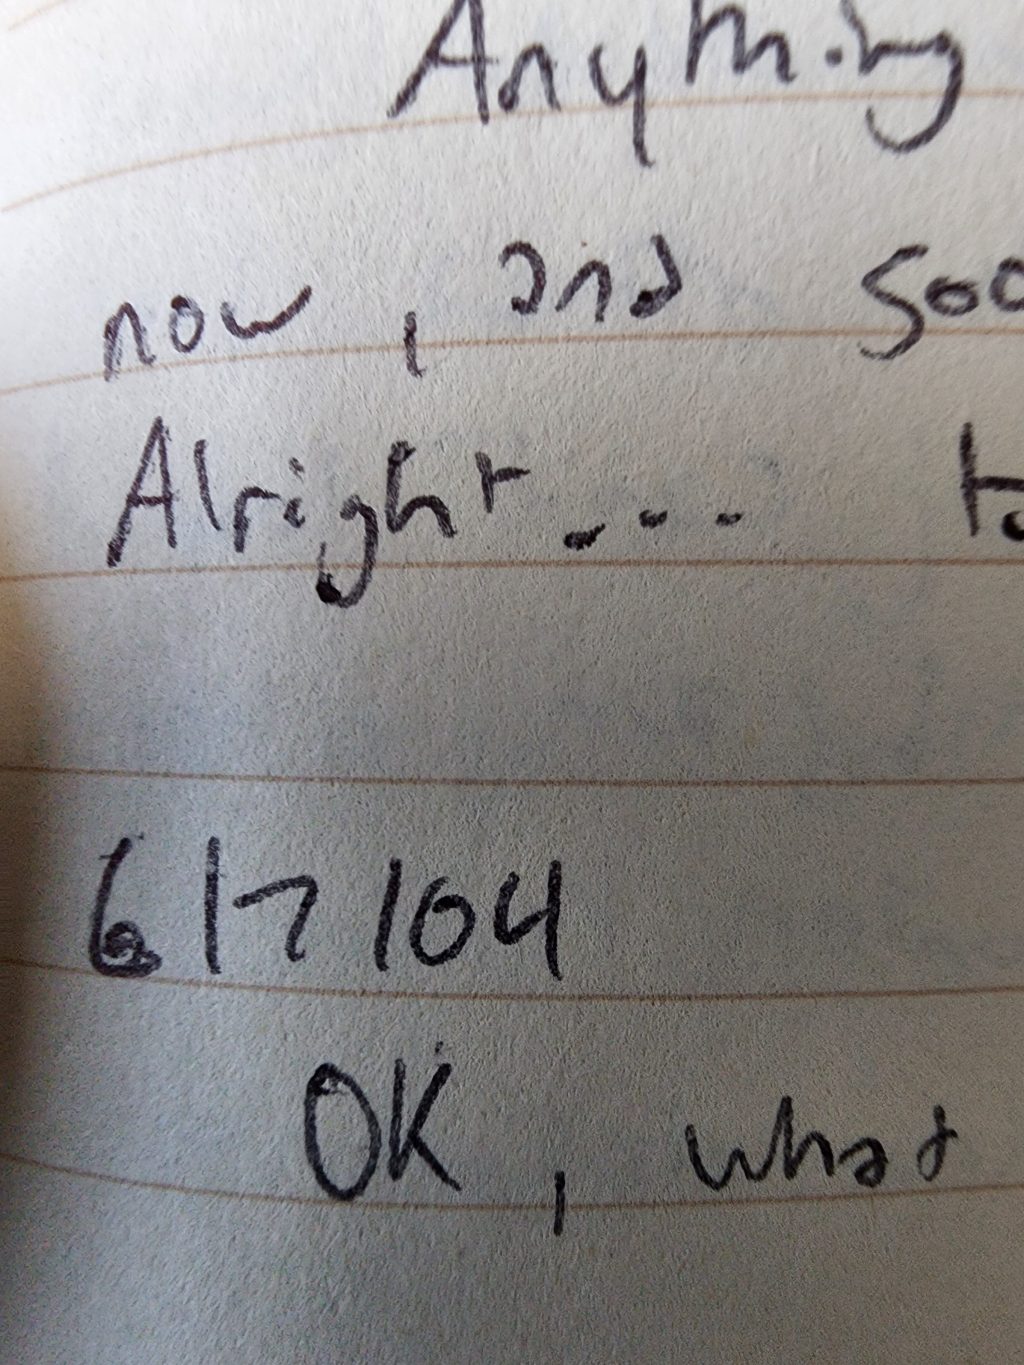 Anything
now, and soo
Alright... to
6/7/04
OK, what